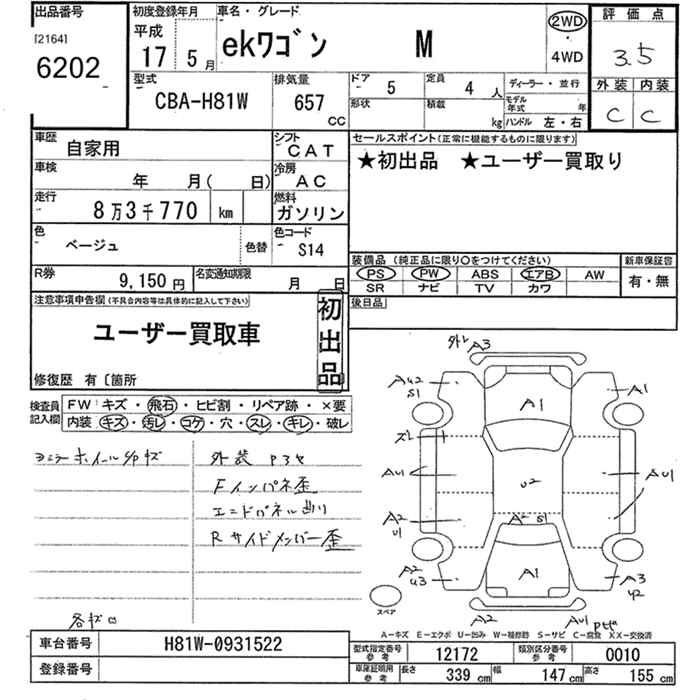 出品番号 初度登録年月 車名・グレード 評価点
[2164] 平成 2WD
6202 17 5月 ekワゴン M 4WD 3.5
型式 排気量 ドア 5 定員 4人 ディーラー・並行 外装 内装
CBA-H81W 657 CC 形状 積載 kg モデル年式 年 ハンドル 左・右 C C
車歴 自家用 シフト CAT セールスポイント(正常に機能するものに限ります)
車検 年 月( 日) 冷房 AC ★初出品 ★ユーザー買取り
走行 8万3千770 km 燃料 ガソリン
色 ベージュ 色替 色コード S14
装備品 (純正品に限り○をつけてください) 新車保証書
PS PW ABS エアB AW 有・無
SR ナビ TV カワ
R券 9,150円 名変通知期限 月 日
注意事項申告欄(不具合内容等は具体的に記入して下さい) 初出品 後日品
ユーザー買取車
修復歴 有〔箇所
検査員記入欄 FW:キズ・飛石・ヒビ割・リペア跡・×要
内装 キズ・汚レ・コゲ・穴・スレ・キレ・破レ
外装 P3セ
Fインパネ歪
エンドパネル凹
Rサイドメンバー歪
A3
AU2 S1 A1 A1
AU1 U2 AU1
A2 U1 A2 S1
A2 U3 A1 A3 U2
スペア A2 AU1
A-キズ E-エクボ U-凹み W-補修跡 S-サビ C-腐食 XX-交換済
車台番号 H81W-0931522 型式指定番号 参考 12172 類別区分番号 参考 0010
登録番号 車庫証明用 参考 長さ 339 cm 幅 147 cm 高さ 155 cm